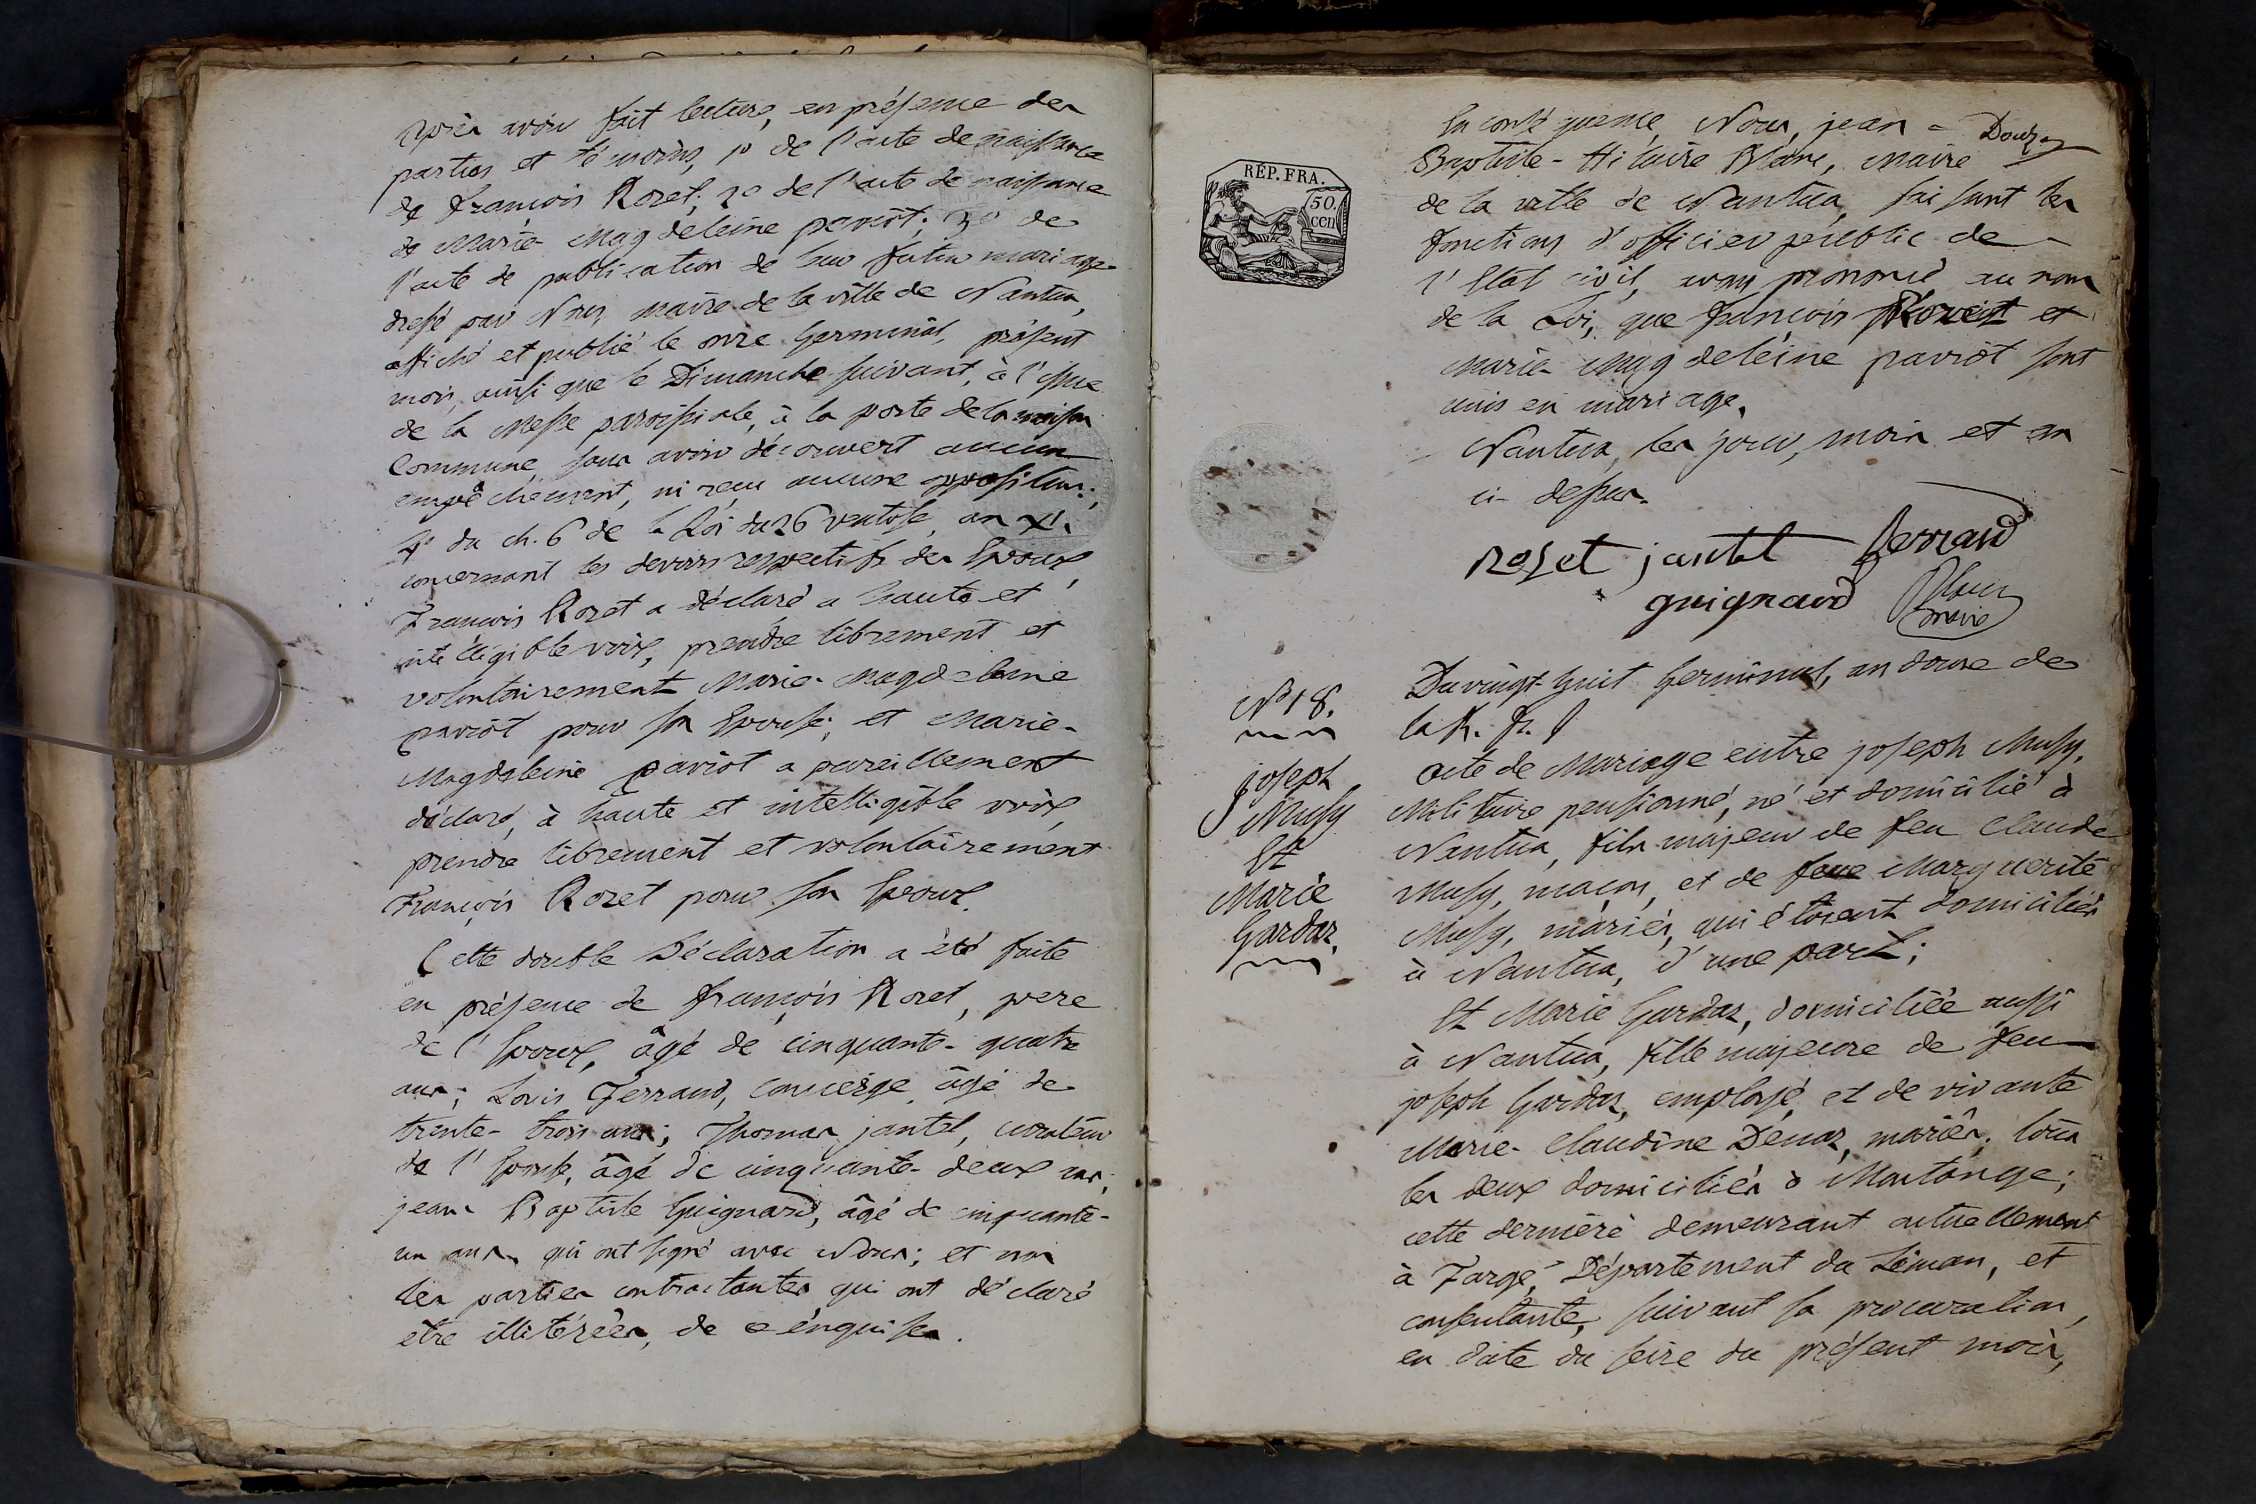 après avoir fait lecture, en présence des
parties et témoins, 1º de l'acte de naissance
de françois Rozet; 2º de l'acte de naissance
de Marie-Magdeleine paviot; 3º de
l'acte de publication de leur futur mariage
dressé par Nous, maire de la ville de Nantua,
affiché et publié le onze Germinal, présent
mois, ainsi que le Dimanche suivant, à l'issue
de la Messe paroissiale, à la porte de la maison
Commune, sans avoir découvert aucun
empêchement, ni reçu aucune opposition;
4º du ch. 6 de la Loi du 26 ventose, an XI,
concernant les devoirs respectifs des Epoux,
François Rozet a déclaré a haute et
intélligible voix, prendre librement et
volontairement Marie-Magdeleine
paviot pour son Epouse; et Marie-
Magdeleine paviot a pareillement
déclaré, à haute et intelligible voix,
prendre librement et volontairement
François Rozet pour son Epoux.
Cette double Déclaration a été faite
en présence de françois Rozet, pere
de l'Epoux, âgé de cinquante-quatre
ans; Louis Ferrand, Concierge, âgé de
trente-trois ans; Thomas jantet, curateur
de l'Epouse, âgé de cinquante-deux ans;
jean Baptiste Guignard, âgé de cinquante-
un ans, qui ont signé avec Nous; et non
les parties contractantes qui ont déclaré
être illitérées, de ce enquises.
RÉP. FRA.
50.
CEN
En conséquence, Nous, jean-
Baptiste-Hilaire Blanc, Maire
de la ville de Nantua, faisant les
fonctions d'officier public de
l'Etat civil, avons prononcé au nom
de la Loi, que françois Rozet et
Marie-Magdeleine paviot sont
unis en mariage.
Nantua, les jour, mois et an
ci-dessus.
rozet jantet ferrand
guignard Blanc
maire
Nº 18.
joseph
Musy
Et
Marie
Gardaz,
Du vingt-huit Germinal, an douze de
la R. fr.
acte de Mariage entre joseph Musy,
Militaire pensionné, né et domicilié à
Nantua, fils majeur de feu Claude
Musy, maçon, et de feue Marguerite
Musy, mariés, qui étoient domiciliés
à Nantua, d'une part;
Et Marie Gardaz, domiciliée aussi
à Nantua, fille majeure de feu
joseph Gardaz, employé, et de vivante
Marie-Claudine Denaz, mariés, tous
les deux domiciliés à Montange;
cette derniere demeurant actuellement
à Farge, Département du Léman, et
consentante, suivant sa procuration,
en date du seize du présent mois,